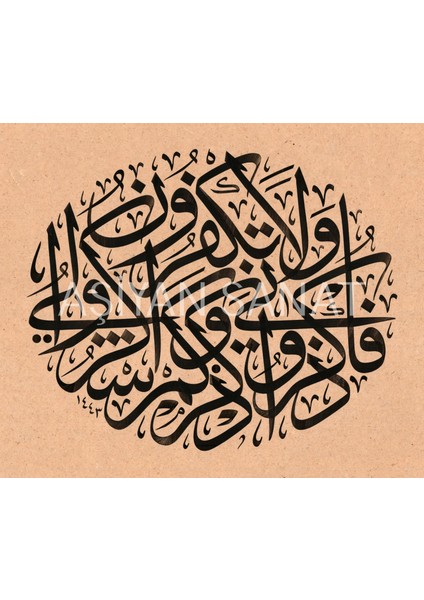 فاذكروني اذكركم واشكروا لي ولا تكفرون
١٤٤٣
AŞİYAN SANAT